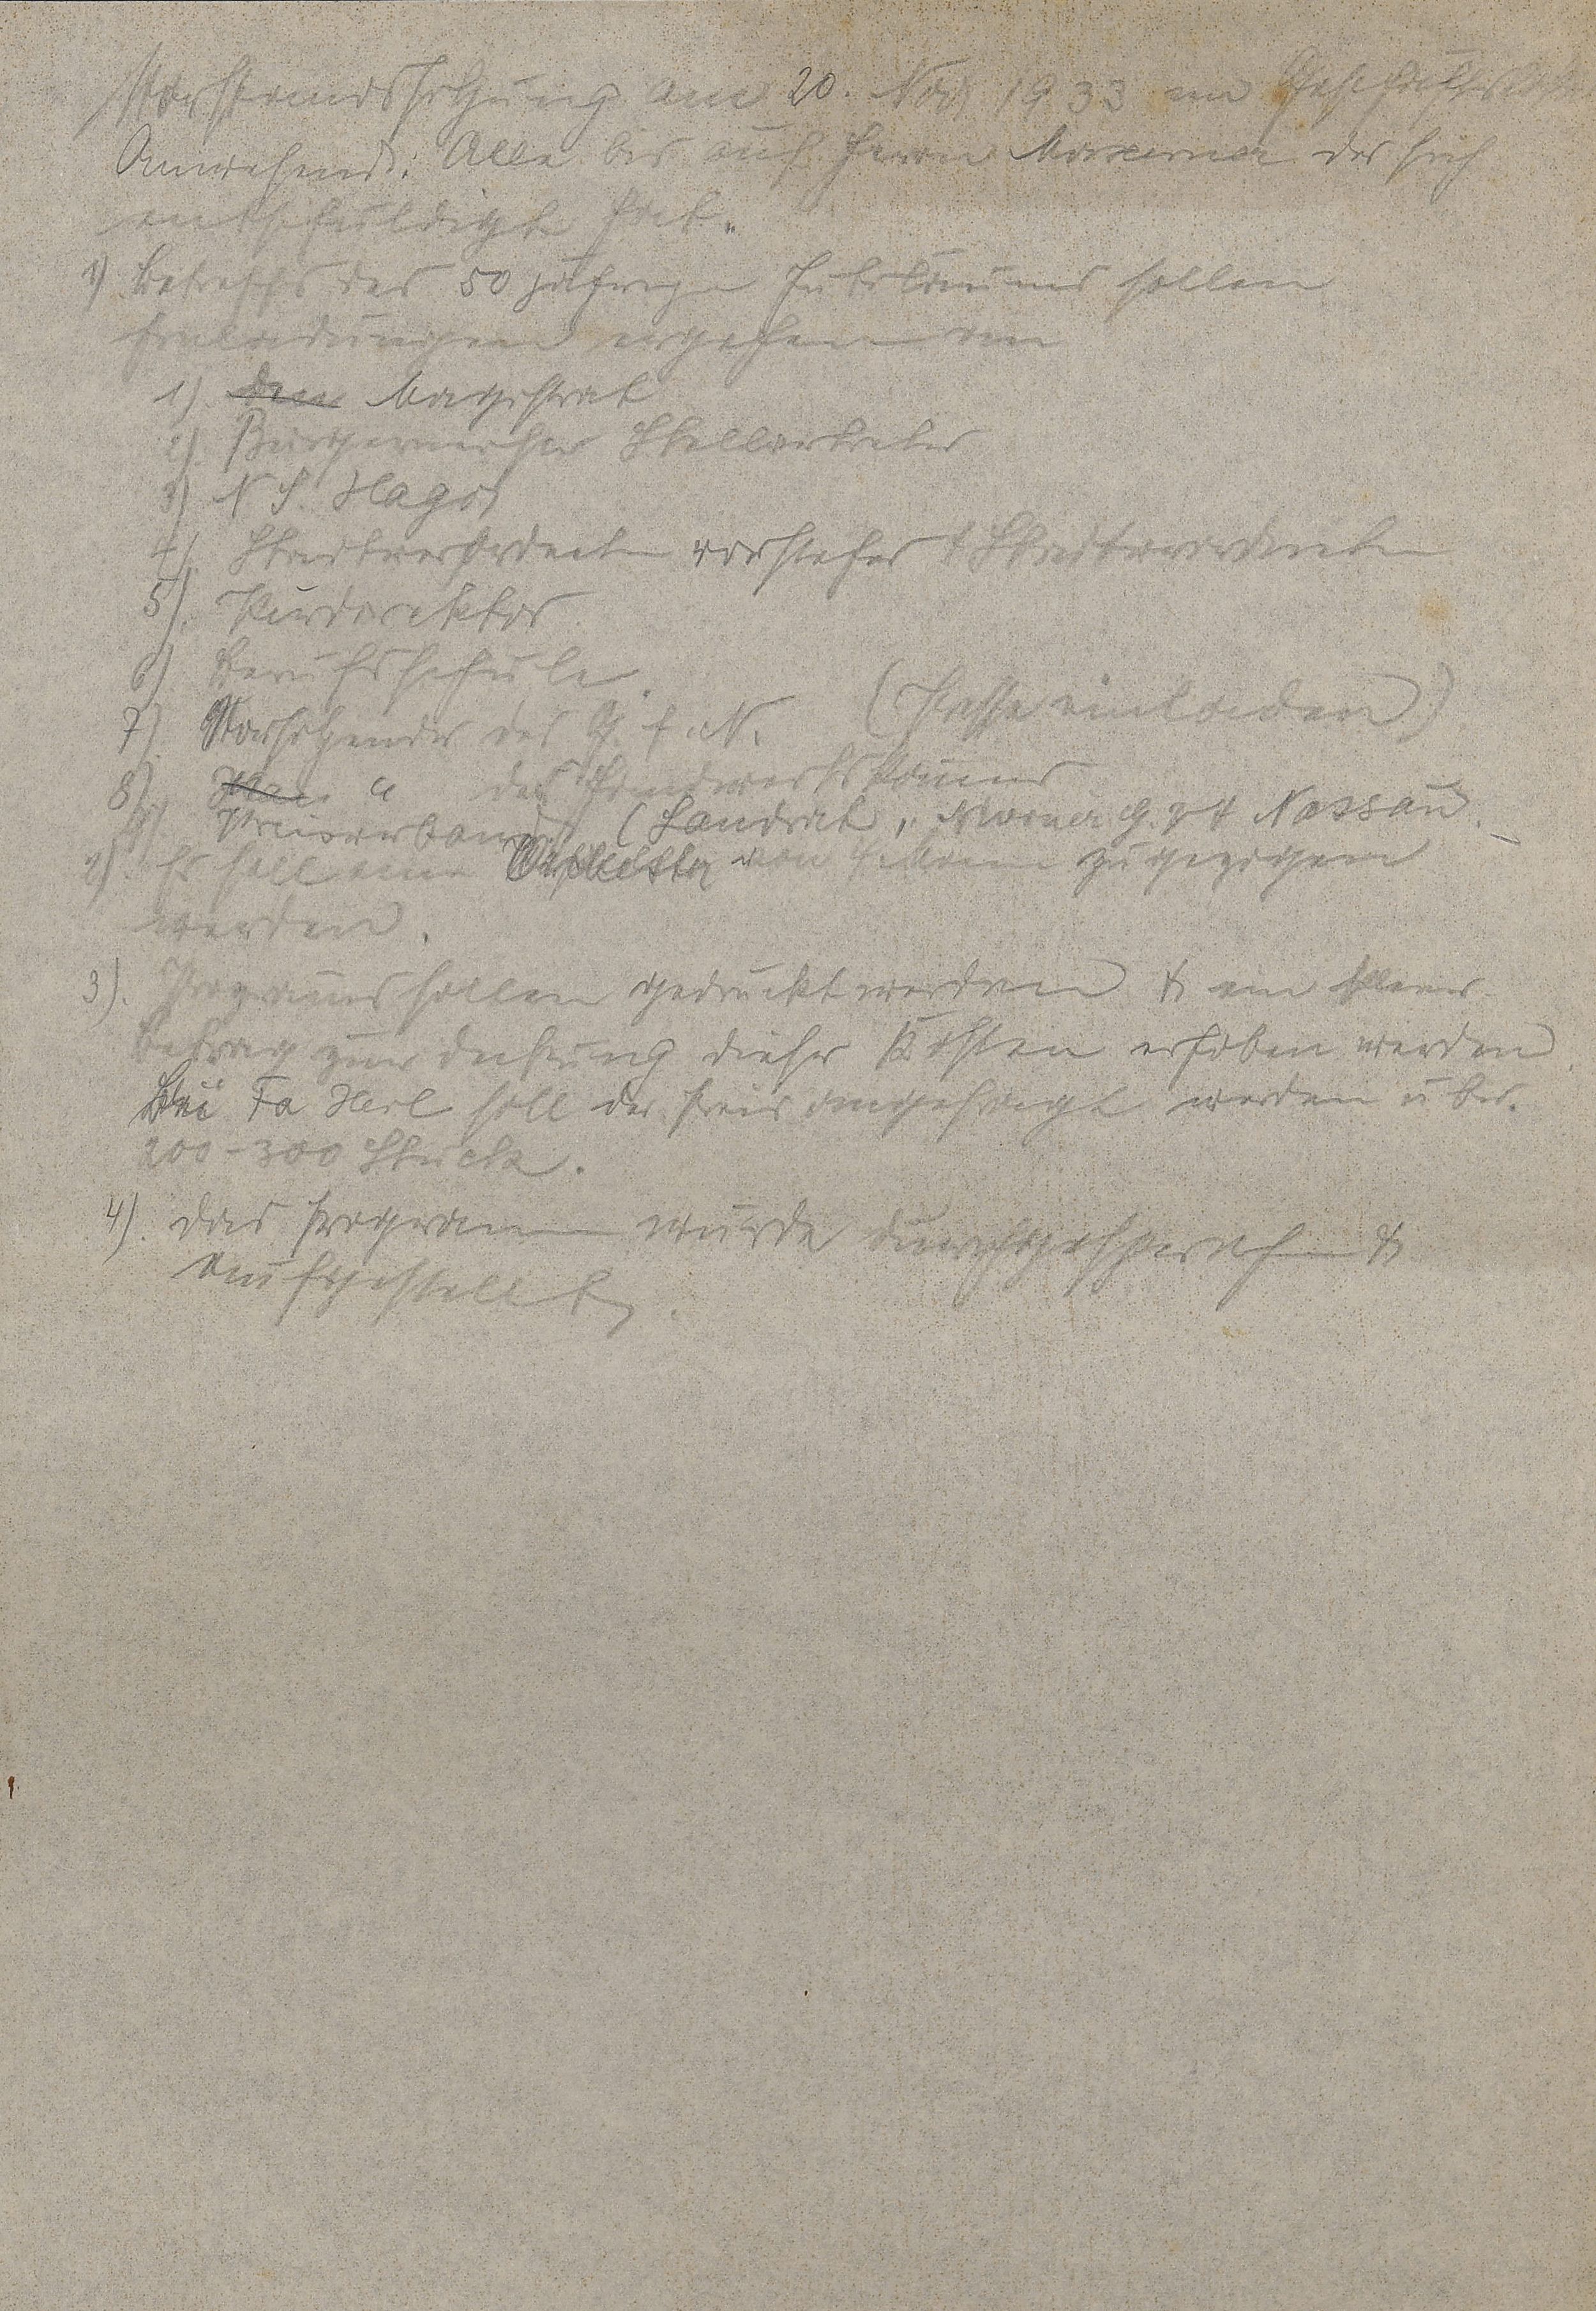 Vorstandssitzung am 20. Nov 1933 im Geschäftslokal
Anwesend: Alle bis auf Herrn der sich
entschuldigt hat.
1) Betreffs des 50 jährigen Jubiläums sollen
Einladungen ergehen an
1). den Magistrat
2). Bürgermeister Stellvertreter
3) N S. Hago
4). Stadtverordneten vorsteher & Stadtverordneten
5). Kurdirektor
6) Berufsschule.
7) Vorsitzender des G. f. N. (Presse einladen)
8) " des
9) Kreisverband (Landrat, Nassau.
2) Es soll eine von 4 Mann zugezogen
werden.
3). Programms sollen gedruckt werden & ein kleiner
Betrag zur Deckung dieser Kosten erhoben werden
Bei Fa Heil soll der Preis angefragt werden über.
200-300 Stück.
4). Das Programm wurde durchgesprochen &
aufgestellt.